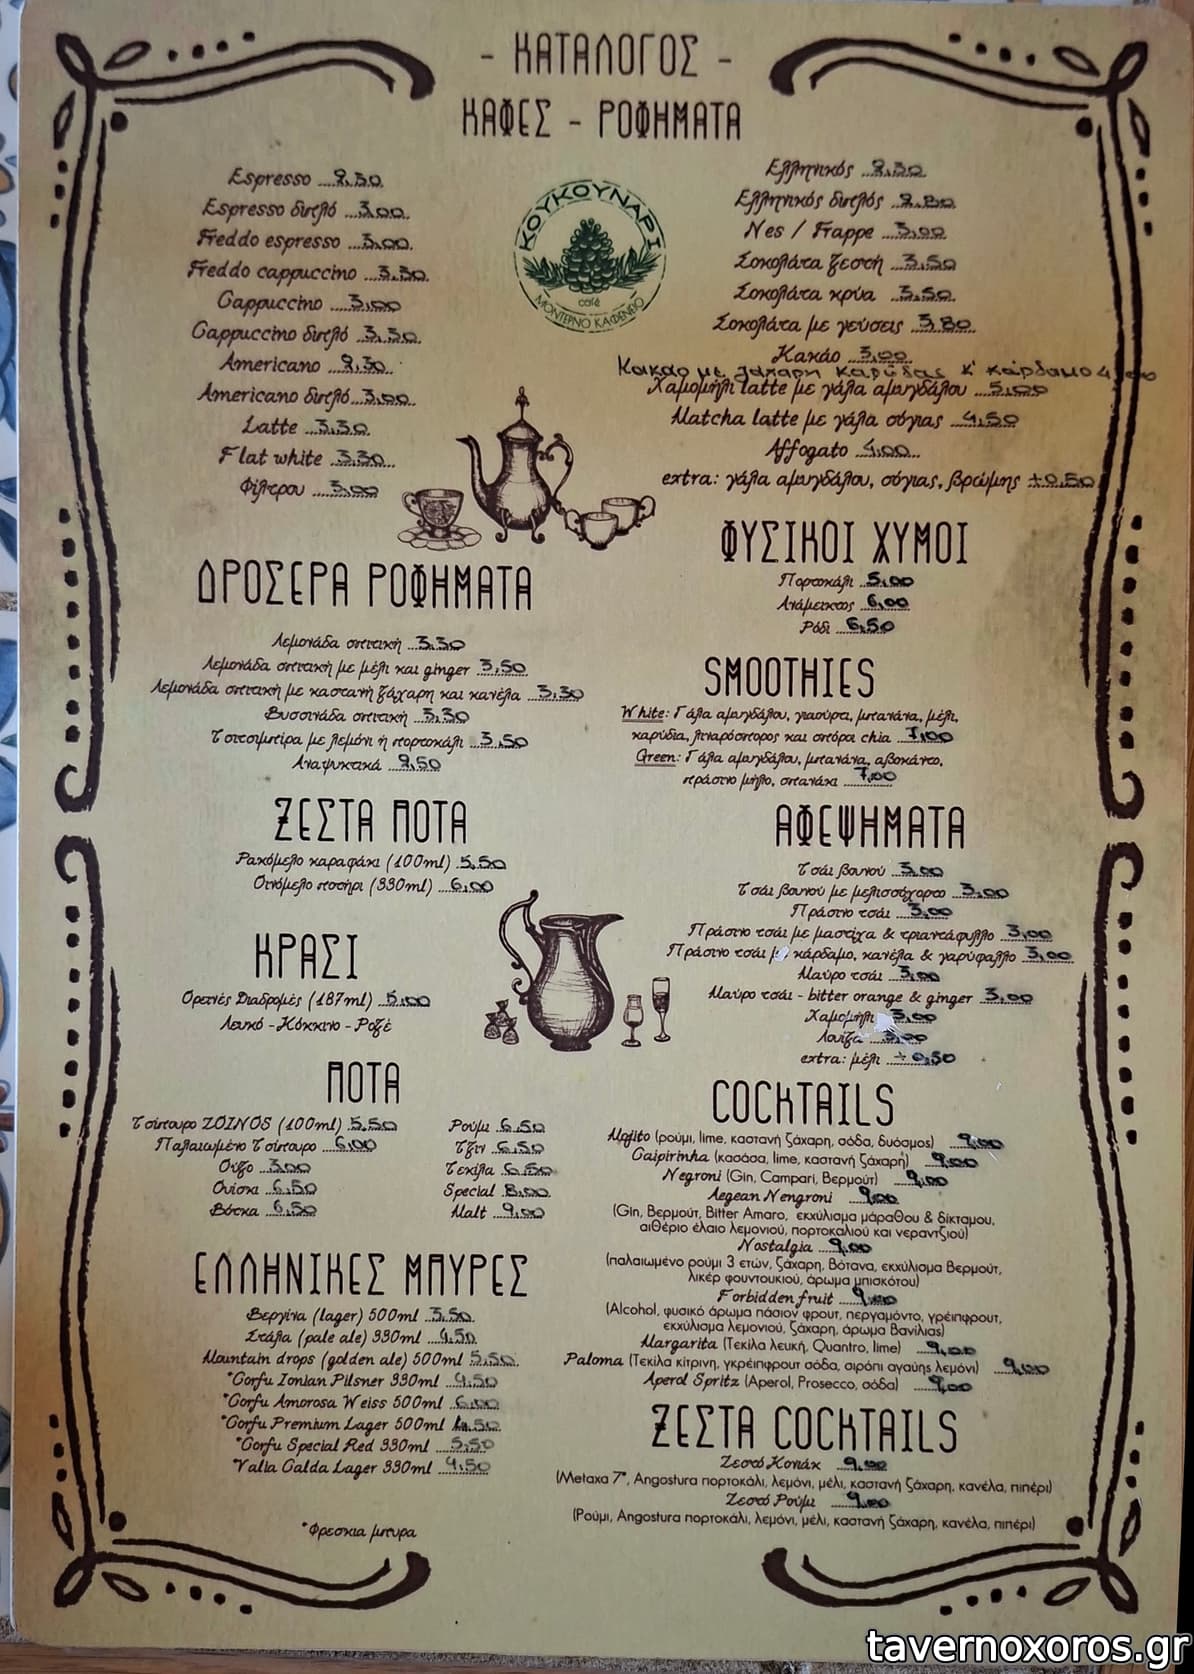 - ΚΑΤΑΛΟΓΟΣ -
ΚΑΦΕΣ - ΡΟΦΗΜΑΤΑ
Espresso 2.30
Espresso διπλό 3.00
Freddo espresso 3.00
Freddo cappuccino 3.30
Cappuccino 3.00
Cappuccino διπλό 3.30
Americano 2.30
Americano διπλό 3.00
Latte 3.30
Flat white 3.30
Φίλτρου 3.00
ΚΟΥΚΟΥΝΑΡΙ
café
ΜΟΝΤΕΡΝΟ ΚΑΦΕΝΕΙΟ
Ελληνικός 2.30
Ελληνικός διπλός 2.80
Nes / Frappe 3.00
Σοκολάτα ζεστή 3.50
Σοκολάτα κρύα 3.50
Σοκολάτα με γεύσεις 3.80
Κακάο 3.00
Κακαο με ζαχαρη καρύδας κ' κάρδαμο
Χαμομήλι latte με γάλα αμυγδάλου 5.00
Matcha latte με γάλα σόγιας 4.50
Affogato 4.00
extra: γάλα αμυγδάλου, σόγιας, βρώμης +0.50
ΔΡΟΣΕΡΑ ΡΟΦΗΜΑΤΑ
Λεμονάδα σπιτική 3.30
Λεμονάδα σπιτική με μέλι και ginger 3.50
Λεμονάδα σπιτική με καστανή ζάχαρη και κανέλα 3.30
Βυσσινάδα σπιτική 3.30
Τσιτσιμπίρα με λεμόνι ή πορτοκάλι 3.50
Αναψυκτικά 2.50
ΦΥΣΙΚΟΙ ΧΥΜΟΙ
Πορτοκάλι 5.00
Ανάμεικτος 6.00
Ρόδι 6.50
SMOOTHIES
White: Γάλα αμυγδάλου, γιαούρτι, μπανάνα, μέλι,
καρύδια, λιναρόσπορος και σπόροι chia 7.00
Green: Γάλα αμυγδάλου, μπανάνα, αβοκάντο,
πράσινο μήλο, σπανάκι 7.00
ΖΕΣΤΑ ΠΟΤΑ
Ρακόμελο καραφάκι (100ml) 5.50
Οινόμελο ποτήρι (330ml) 6.00
ΚΡΑΣΙ
Ορεινές Διαδρομές (187ml) 5.00
Λευκό - Κόκκινο - Ροζέ
ΑΦΕΨΗΜΑΤΑ
Τσάι βουνού 3.00
Τσάι βουνού με μελισσόχορτο 3.00
Πράσινο τσάι 3.00
Πράσινο τσάι με μαστίχα & τριαντάφυλλο 3.00
Πράσινο τσάι με κάρδαμο, κανέλα & γαρύφαλλο 3.00
Μαύρο τσάι 3.00
Μαύρο τσάι - bitter orange & ginger 3.00
Χαμομήλι 3.00
Λουίζα 3.00
extra: μέλι +0.50
ΠΟΤΑ
Τσίπουρο ZOINOS (100ml) 5.50
Παλαιωμένο Τσίπουρο 6.00
Ούζο 3.00
Ουίσκι 6.50
Βότκα 6.50
Ρούμι 6.50
Τζιν 6.50
Τεκίλα 6.50
Special 8.00
Malt 9.00
ΕΛΛΗΝΙΚΕΣ ΜΠΥΡΕΣ
Βεργίνα (lager) 500ml 3.50
Στάλα (pale ale) 330ml 4.50
Mountain drops (golden ale) 500ml 5.50
*Corfu Ionian Pilsner 330ml 4.50
*Corfu Amorosa Weiss 500ml 6.00
*Corfu Premium Lager 500ml
*Corfu Special Red 330ml 5.50
*Valia Calda Lager 330ml 4.50
*Φρεσκια μπυρα
COCKTAILS
Mojito (ρούμι, lime, καστανή ζάχαρη, σόδα, δυόσμος) 9.00
Caipirinha (κασάσα, lime, καστανή ζάχαρη) 9.00
Negroni (Gin, Campari, Βερμούτ) 9.00
Aegean Nengroni 9.00
(Gin, Βερμούτ, Bitter Amaro, εκχύλισμα μάραθου & δίκταμου,
αιθέριο έλαιο λεμονιού, πορτοκαλιού και νεραντζιού)
Nostalgia 9.00
(παλαιωμένο ρούμι 3 ετών, ζάχαρη, Βότανα, εκχύλισμα Βερμούτ,
λικέρ φουντουκιού, άρωμα μπισκότου)
Forbidden fruit 9.00
(Alcohol, φυσικό άρωμα πάσιον φρουτ, περγαμόντο, γρέιπφρουτ,
εκχύλισμα λεμονιού, ζάχαρη, άρωμα Βανίλιας)
Margarita (Τεκίλα λευκή, Quantro, lime) 9.00
Paloma (Τεκίλα κίτρινη, γκρέιπφρουτ σόδα, σιρόπι αγαύης λεμόνι) 9.00
Aperol Spritz (Aperol, Prosecco, σόδα) 9.00
ΖΕΣΤΑ COCKTAILS
Ζεστό Κονιάκ 9.00
(Metaxa 7*, Angostura πορτοκάλι, λεμόνι, μέλι, καστανή ζάχαρη, κανέλα, πιπέρι)
Ζεστό Ρούμι 9.00
(Ρούμι, Angostura πορτοκάλι, λεμόνι, μέλι, καστανή ζάχαρη, κανέλα, πιπέρι)
tavernoxoros.gr